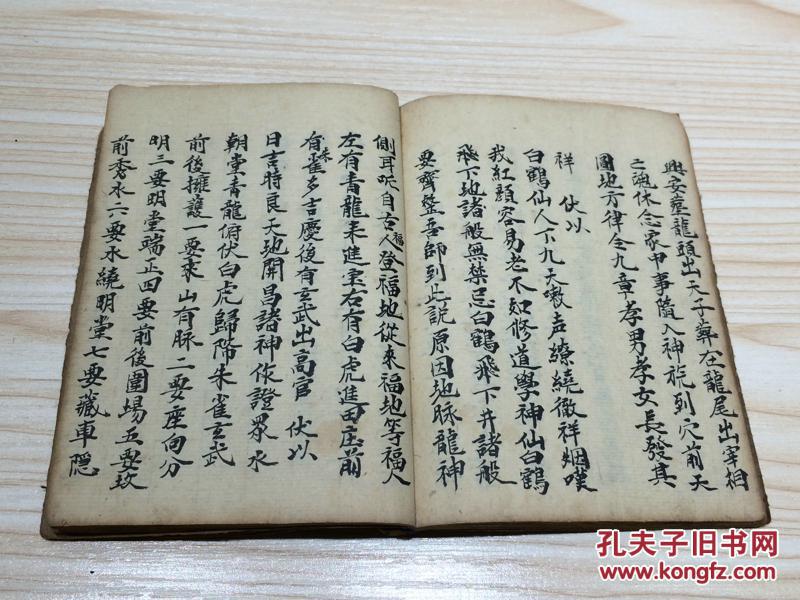 興安墓龍頭出天子葬在龍尾出宰相
之魂休念家中事隨入神旐到穴前天
圓地方律令九章孝男孝女長發其
祥 伏以
白鶴仙人下九天嗷声繚繞徹祥烟嘆
我紅顏容易老不如修道學神仙白鶴
飛下地諸般無禁忌白鶴飛下井諸般
要齊整吾師到此説原因地脉龍神
側耳听自古福人登福地從來福地等福人
左有青龍來進宝右有白虎進田庄前
有朱雀多吉慶後有玄武出高官 伏以
日吉時良天地開昌諸神作證眾水
朝堂青龍俯伏白虎歸降朱雀玄武
前後擁護一要來山有脉二要座向分
明三要明堂端正四要前後圍場五要坟
前秀水六要水繞明堂七要藏車隐
孔夫子旧书网
www.kongfz.com